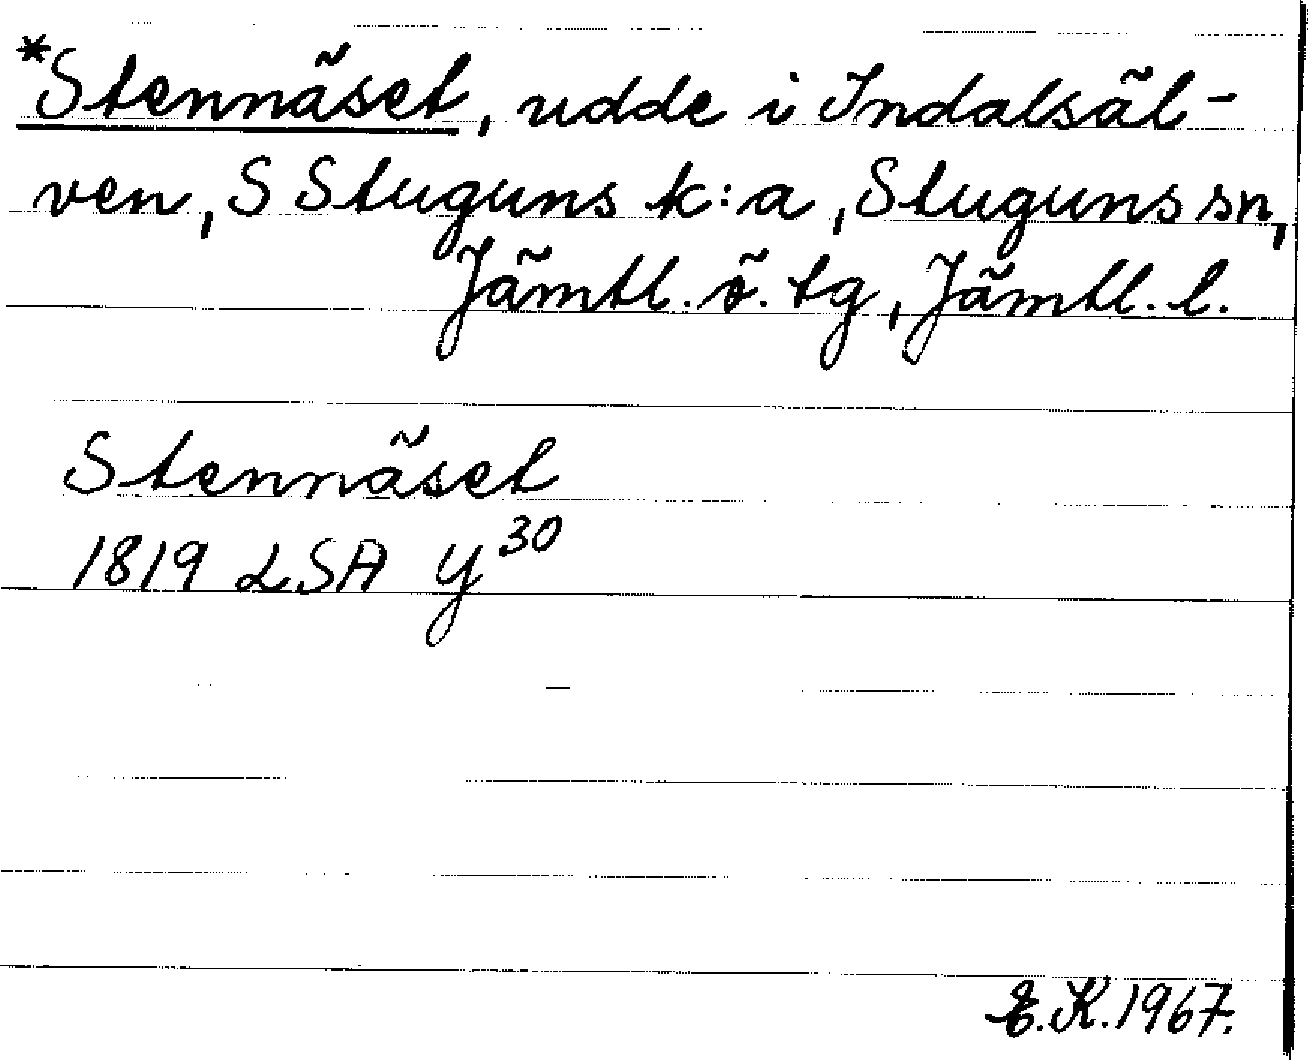 *Stennäset, udde i Indalsäl-
ven, S Stuguns k:a, Stuguns sn,
Jämtl. ö. tg, Jämtl. l.
Stennäset
1819 LSA y³⁰
E.K. 1967.